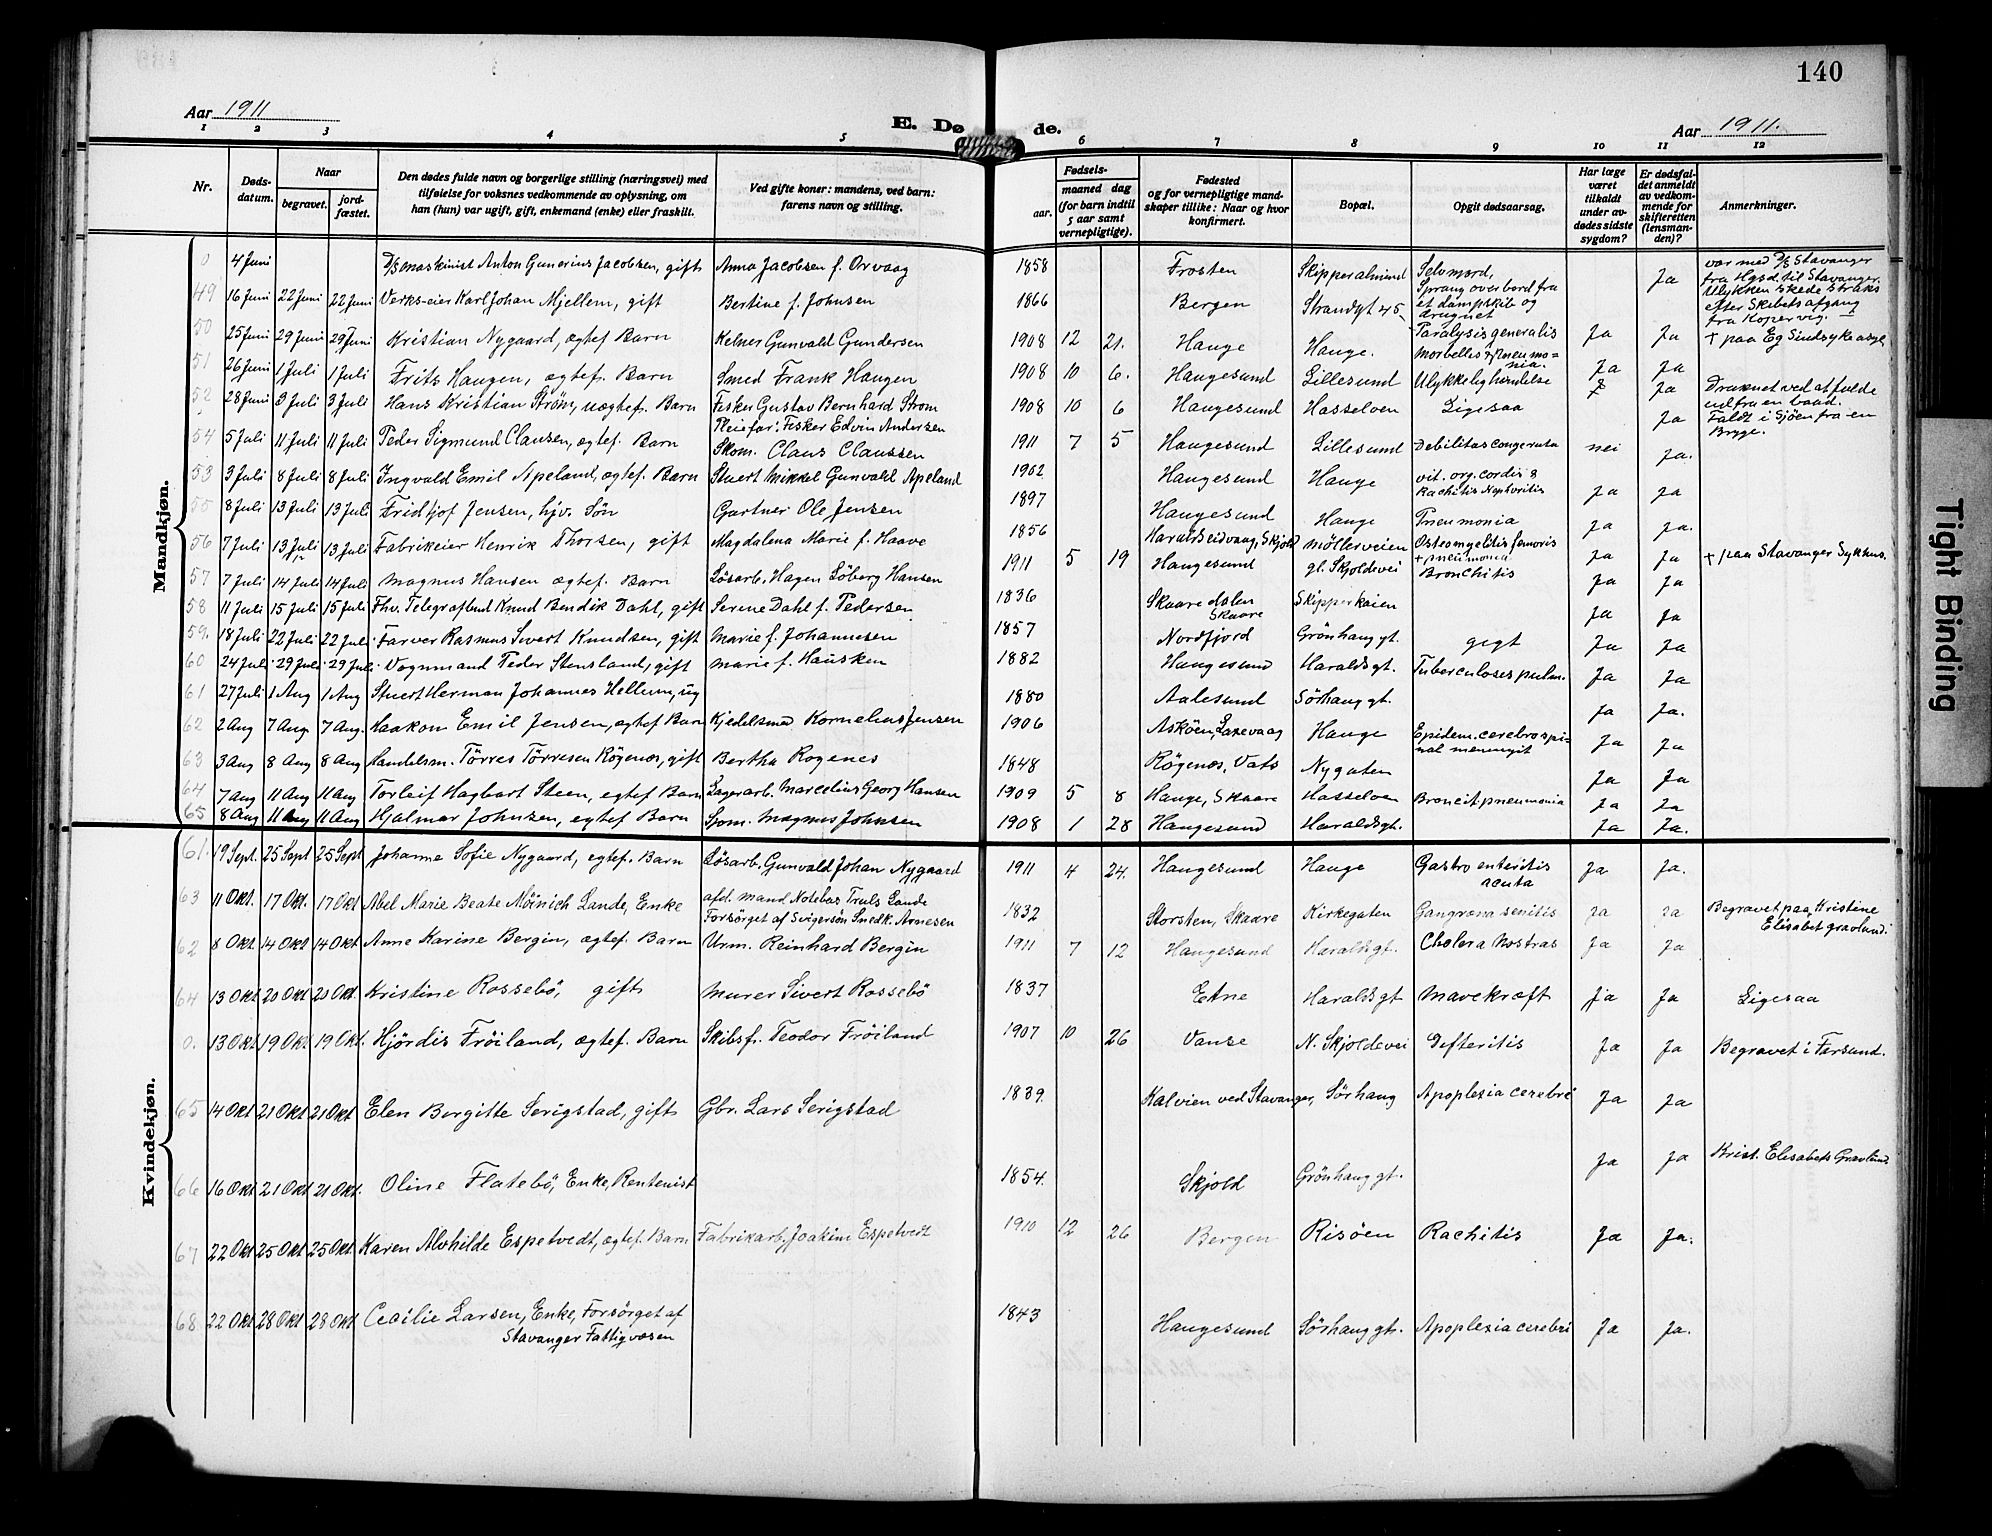 140
Aar 1911
E. Dø de.
Aar 1911.
1 2 3 4 5 6 7 8 9 10 11 12
Nr.
Døds-
datum.
Naar
begravet.
jord-
fæstet.
Den dødes fulde navn og borgerlige stilling (næringsvei) med
tilføielse for voksnes vedkommende av oplysning, om
han (hun) var ugift, gift, enkemand (enke) eller fraskilt.
Ved gifte koner: mandens, ved barn:
farens navn og stilling.
Fødsels-
aar.
maaned dag
(for barn indtil
5 aar samt
vernepligtige).
Fødested
og for vernepligtige mand-
skaper tillike: Naar og hvor
konfirmert.
Bopæl.
Opgit dødsaarsag.
Har læge
været
tilkaldt
under av-
dødes sidste
sygdom?
Er dødsfal-
det anmeldt
av vedkom-
mende for
skifteretten
(lensman-
den)?
Anmerkninger.
Mandkjøn.
0 4 Juni D/S Maskinist Anton Gunerius Jacobsen, gift Anna Jacobsen f. Orvaag 1858 Frosten Skipperalmind Selvmord, Sprang overbord fra et dampskib og druknet Ja var med D/S Stavanger fra Hgsd til Stavanger. Ulykken skede straks efter Skibets afgang fra Kopervig.
49 16 Juni 22 Juni 22 Juni Verks-eier Karl Johan Mjellem, gift Bertine f. Johnsen 1866 Bergen Strandgt 45 Paralysis generalis Ja Ja + paa Eg Sindsykeasyl
50 25 Juni 29 Juni 29 Juni Kristian Nygaard, ægtef Barn Kelner Gunvald Gundersen 1908 12 21. Hauge Hauge. Morbelles & Pneumonia. Ja Ja
51 26 Juni 1 Juli 1 Juli Frits Haugen, ægtef. Barn Smed Frank Haugen 1908 10 6. Haugesund Lillesund Ulykkelig hændelse Ja Druknet ved at falde ud fra en baad.
52 28 Juni 3 Juli 3 Juli Hans Kristian Strøm, uægtef. Barn Fisker Gustav Bernhard Strøm Pleiefar: Fisker Edvin Andersen 1908 10 6 Haugesund Hasseloen Ligesaa Ja Faldt i Sjöen fra en Brygge.
54 5 Juli 11 Juli 11 Juli Peder Sigmund Clausen, ægtef. Barn Skom. Claus Claussen 1911 7 5 Haugesund Lillesund Debilitas congenita nei Ja.
53 3 Juli 8 Juli 8 Juli Ingvald Emil Apeland, ægtef. Barn Stuert Mikkel Gunvald Apeland 1902 Haugesund Hauge vit. org. cordis & Rachitis Nephritis Ja Ja
55 8 Juli 13 Juli 13 Juli Fridtjof Jensen, hjv. Søn Gartner Ole Jensen 1897 Haugesund Hauge Pneumonia Ja Ja.
56 7 Juli 13 Juli 13 Juli Fabrikeier Henrik Thorsen, gift Magdalena Marie f. Haave 1856 Haraldseidvaag, Skjold Møllerveien Osteomyelitis femoris + pneumonia Ja Ja + paa Stavanger Sykhus.
57 7 Juli 14 Juli 14 Juli Magnus Hansen ægtef. Barn Løsarb. Hagen Løberg Hansen 1911 5 19 Haugesund gl. Skjoldevei Bronchitis Ja Ja
58 11 Juli 15 Juli 15 Juli Fhv. Telegrafbud Knud Bendik Dahl, gift Serene Dahl f. Pedersen 1836 Skaaredalen Skaare Skipperkaien Ja Ja
59. 18 Juli 22 Juli 22 Juli Farver Rasmus Sivert Knudsen, gift Marie f. Johannesen 1857 Nordfjord Grönhauggt. gigt Ja Ja
60 24 Juli 29 Juli 29 Juli Vognmand Peder Stensland, gift Marie f. Hausken 1882 Haugesund Haraldsgt. Tuberculoses pulm. Ja Ja
61 27 Juli 1 Aug 1 Aug Stuert Herman Johannes Hellum, ug 1880 Aalesund Sörhauggt. Ja Ja.
62 2 Aug 7 Aug 7 Aug. Haakon Emil Jensen, ægtef Barn Kjedelsmed Kornelius Jensen 1906 Askøen, Laxevaag Hauge Epidem. cerebrospinal meningit Ja Ja
63 3 Aug 8 Aug 8 Aug Handelsm. Törres Törresen Rögenæs, gift Bertha Rogenes 1848 Rögenæs, Vats Nygaten Ja Ja
64 7 Aug 11 Aug 11 Aug Torleif Hagbart Steen, egtef Barn Lagerarb. Marcelius Georg Hansen 1909 5 8 Hauge, Skaare Hasseloen Broncitpneumonia Ja Ja
65 8 Aug 11 Aug 11 Aug Hjalmar Johnsen, egtef Barn Sjøm. Magnus Johnsen 1908 1 28 Haugesund Haraldsgt. Ja Ja.
Kvindekjøn.
61. 19 Sept. 25 Sept 25 Sept Johanne Sofie Nygaard, egtef. Barn Løsarb. Gunvald Johan Nygaard 1911 4 24. Haugesund Hauge Gastroenteritis acuta Ja Ja.
63 11 Okt. 17 Okt. 17 Okt Abel Marie Beate Möinich Lande, Enke afd. mand Notebas Truls Lande Forsörget af Svigersön Snedk. Arnesen 1832 Storsten, Skaare Kirkegaten Gangræna senilis Ja Ja Begravet paa Kristine Elisabet gravlund.
62 8 Okt 14 Okt 14 Okt Anne Karine Bergin, ægtef. Barn Urm. Reinhard Bergin 1911 7 12 Haugesund Haraldsgt. Cholera Nostras Ja Ja
64 13 Okt 20 Okt 20 Okt Kristine Rossebö, gift Murer Sivert Rossebö 1837 Etne Haraldsgt Mavekræft Ja Ja Ligesaa
0. 13 Okt 19 Okt 19 Okt. Hjördis Fröiland, ægtef. Barn Skibsf. Teodor Fröiland 1907 10 26 Vanse N. Skjoldevei Difteritis Ja Ja Begravet i Farsund.
65 14 Okt 21 Okt 21 Okt Elen Bergitte Serigstad, gift Gbr. Lars Serigstad 1839. Kalvien ved Stavanger, Sörhaug Apoplexia cerebri Ja Ja
66 16 Okt 21 Okt 21 Okt. Oline Flatebö, Enke, Rentenist 1854. Skjold Grönhauggt. Ja Ja Krist. Elisabets Gravlund.
67 22 Okt 25 Okt 25 Okt. Karen Alvhilde Espetvedt, ægtef. Barn Fabrikarb. Joakim Espetvedt 1910 12 26 Bergen Risöen Rachitis Ja Ja.
68 22 Okt 28 Okt 28 Okt Cecilie Larsen, Enke, Forsörget af Stavanger Fattigvæsen 1843 Haugesund Sörhauggt. Apoplexia cerebri Ja Ja.
Tight Binding